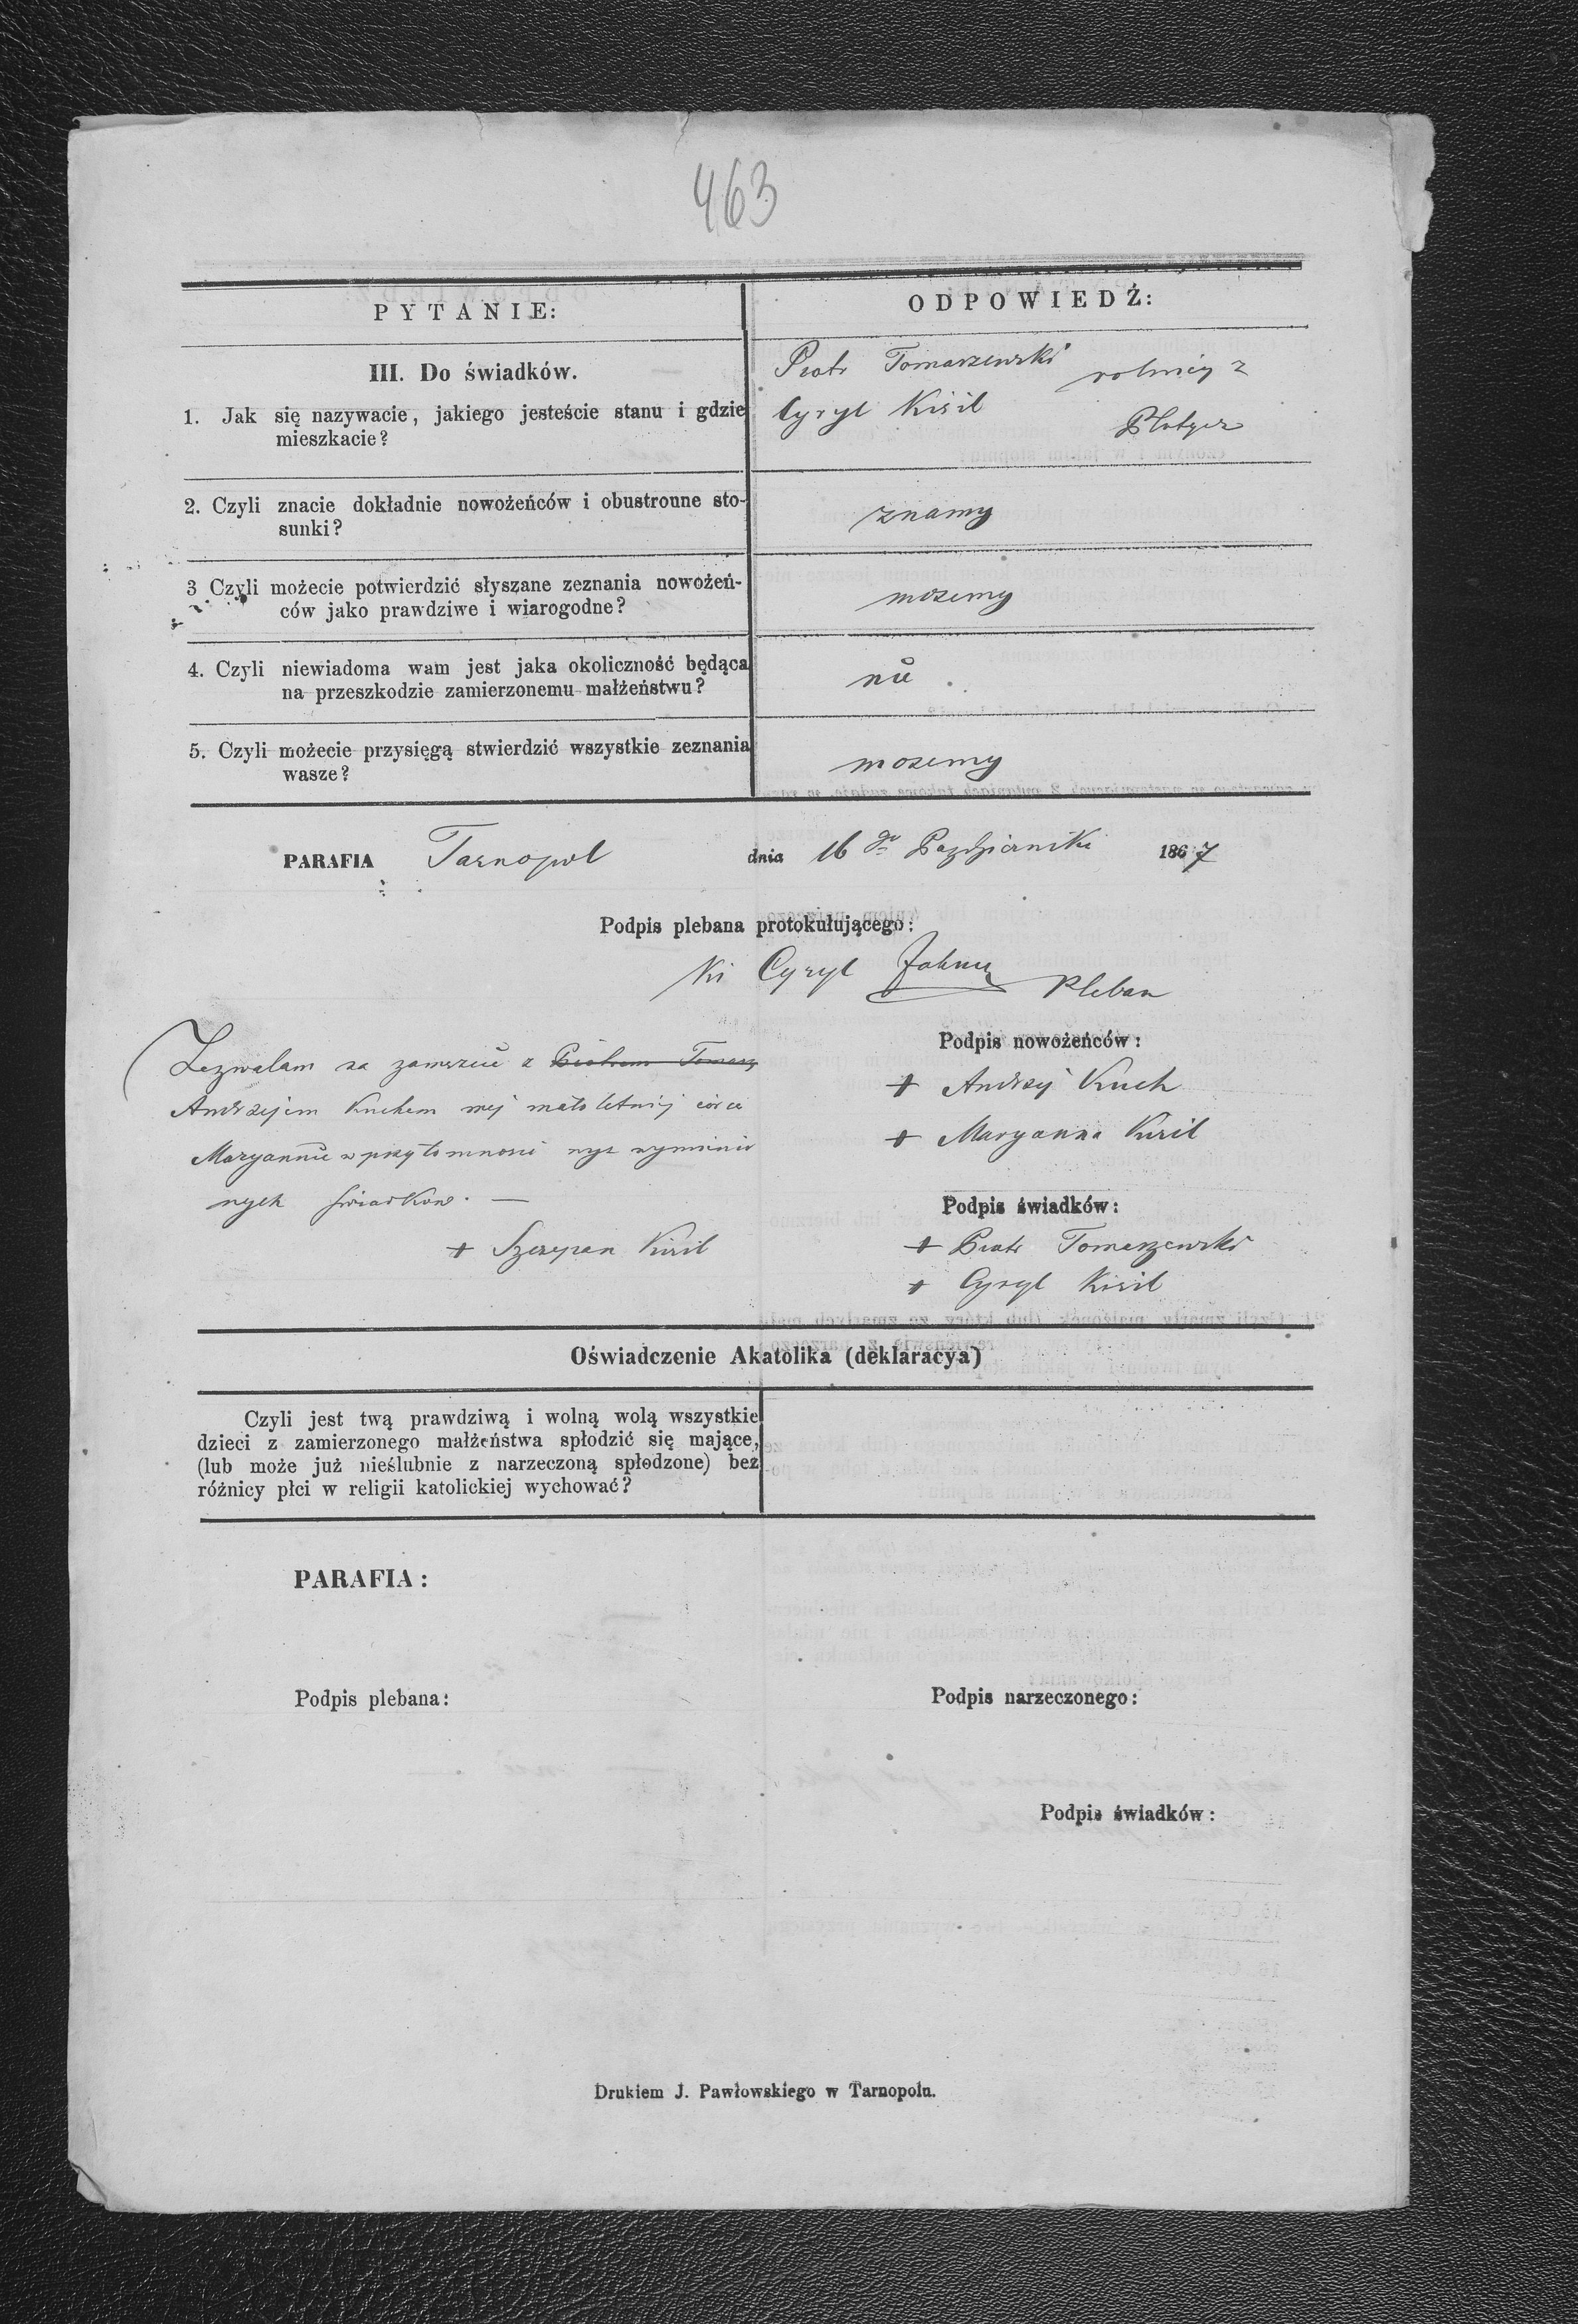 463
PYTANIE:
ODPOWIEDŹ:
III. Do świadków.
1. Jak się nazywacie, jakiego jesteście stanu i gdzie
mieszkacie?
Piotr Tomaszewski rolnicy z
Cyryl Kisil
Płotycz
2. Czyli znacie dokładnie nowożeńców i obustronne sto-
sunki?
znamy
3 Czyli możecie potwierdzić słyszane zeznania nowożeń-
ców jako prawdziwe i wiarogodne?
możemy
4. Czyli niewiadoma wam jest jaka okoliczność będąca
na przeszkodzie zamierzonemu małżeństwu?
nie
5. Czyli możecie przysięgą stwierdzić wszystkie zeznania
wasze?
możemy
PARAFIA Tarnopol dnia 16go Października 1867
Podpis plebana protokułującego:
Cyryl Pleban
Zezwalam na zamęzcie z Piotrem Tomasz
Andrzejem Kuchem mej małoletniej córce
Maryannie w przytomności wymienio
nych świadków. —
+ Szczepan Kisil
Podpis nowożeńców:
+ Andrzej Kuch
+ Maryanna Kisil
Podpis świadków:
+ Piotr Tomaszewski
+ Cyryl Kisil
Oświadczenie Akatolika (deklaracya)
Czyli jest twą prawdziwą i wolną wolą wszystkie
dzieci z zamierzonego małżeństwa spłodzić się mające,
(lub może już nieślubnie z narzeczoną spłodzone) bez
różnicy płci w religii katolickiej wychować?
PARAFIA:
Podpis plebana:
Podpis narzeczonego:
Podpis świadków:
Drukiem J. Pawłowskiego w Tarnopolu.